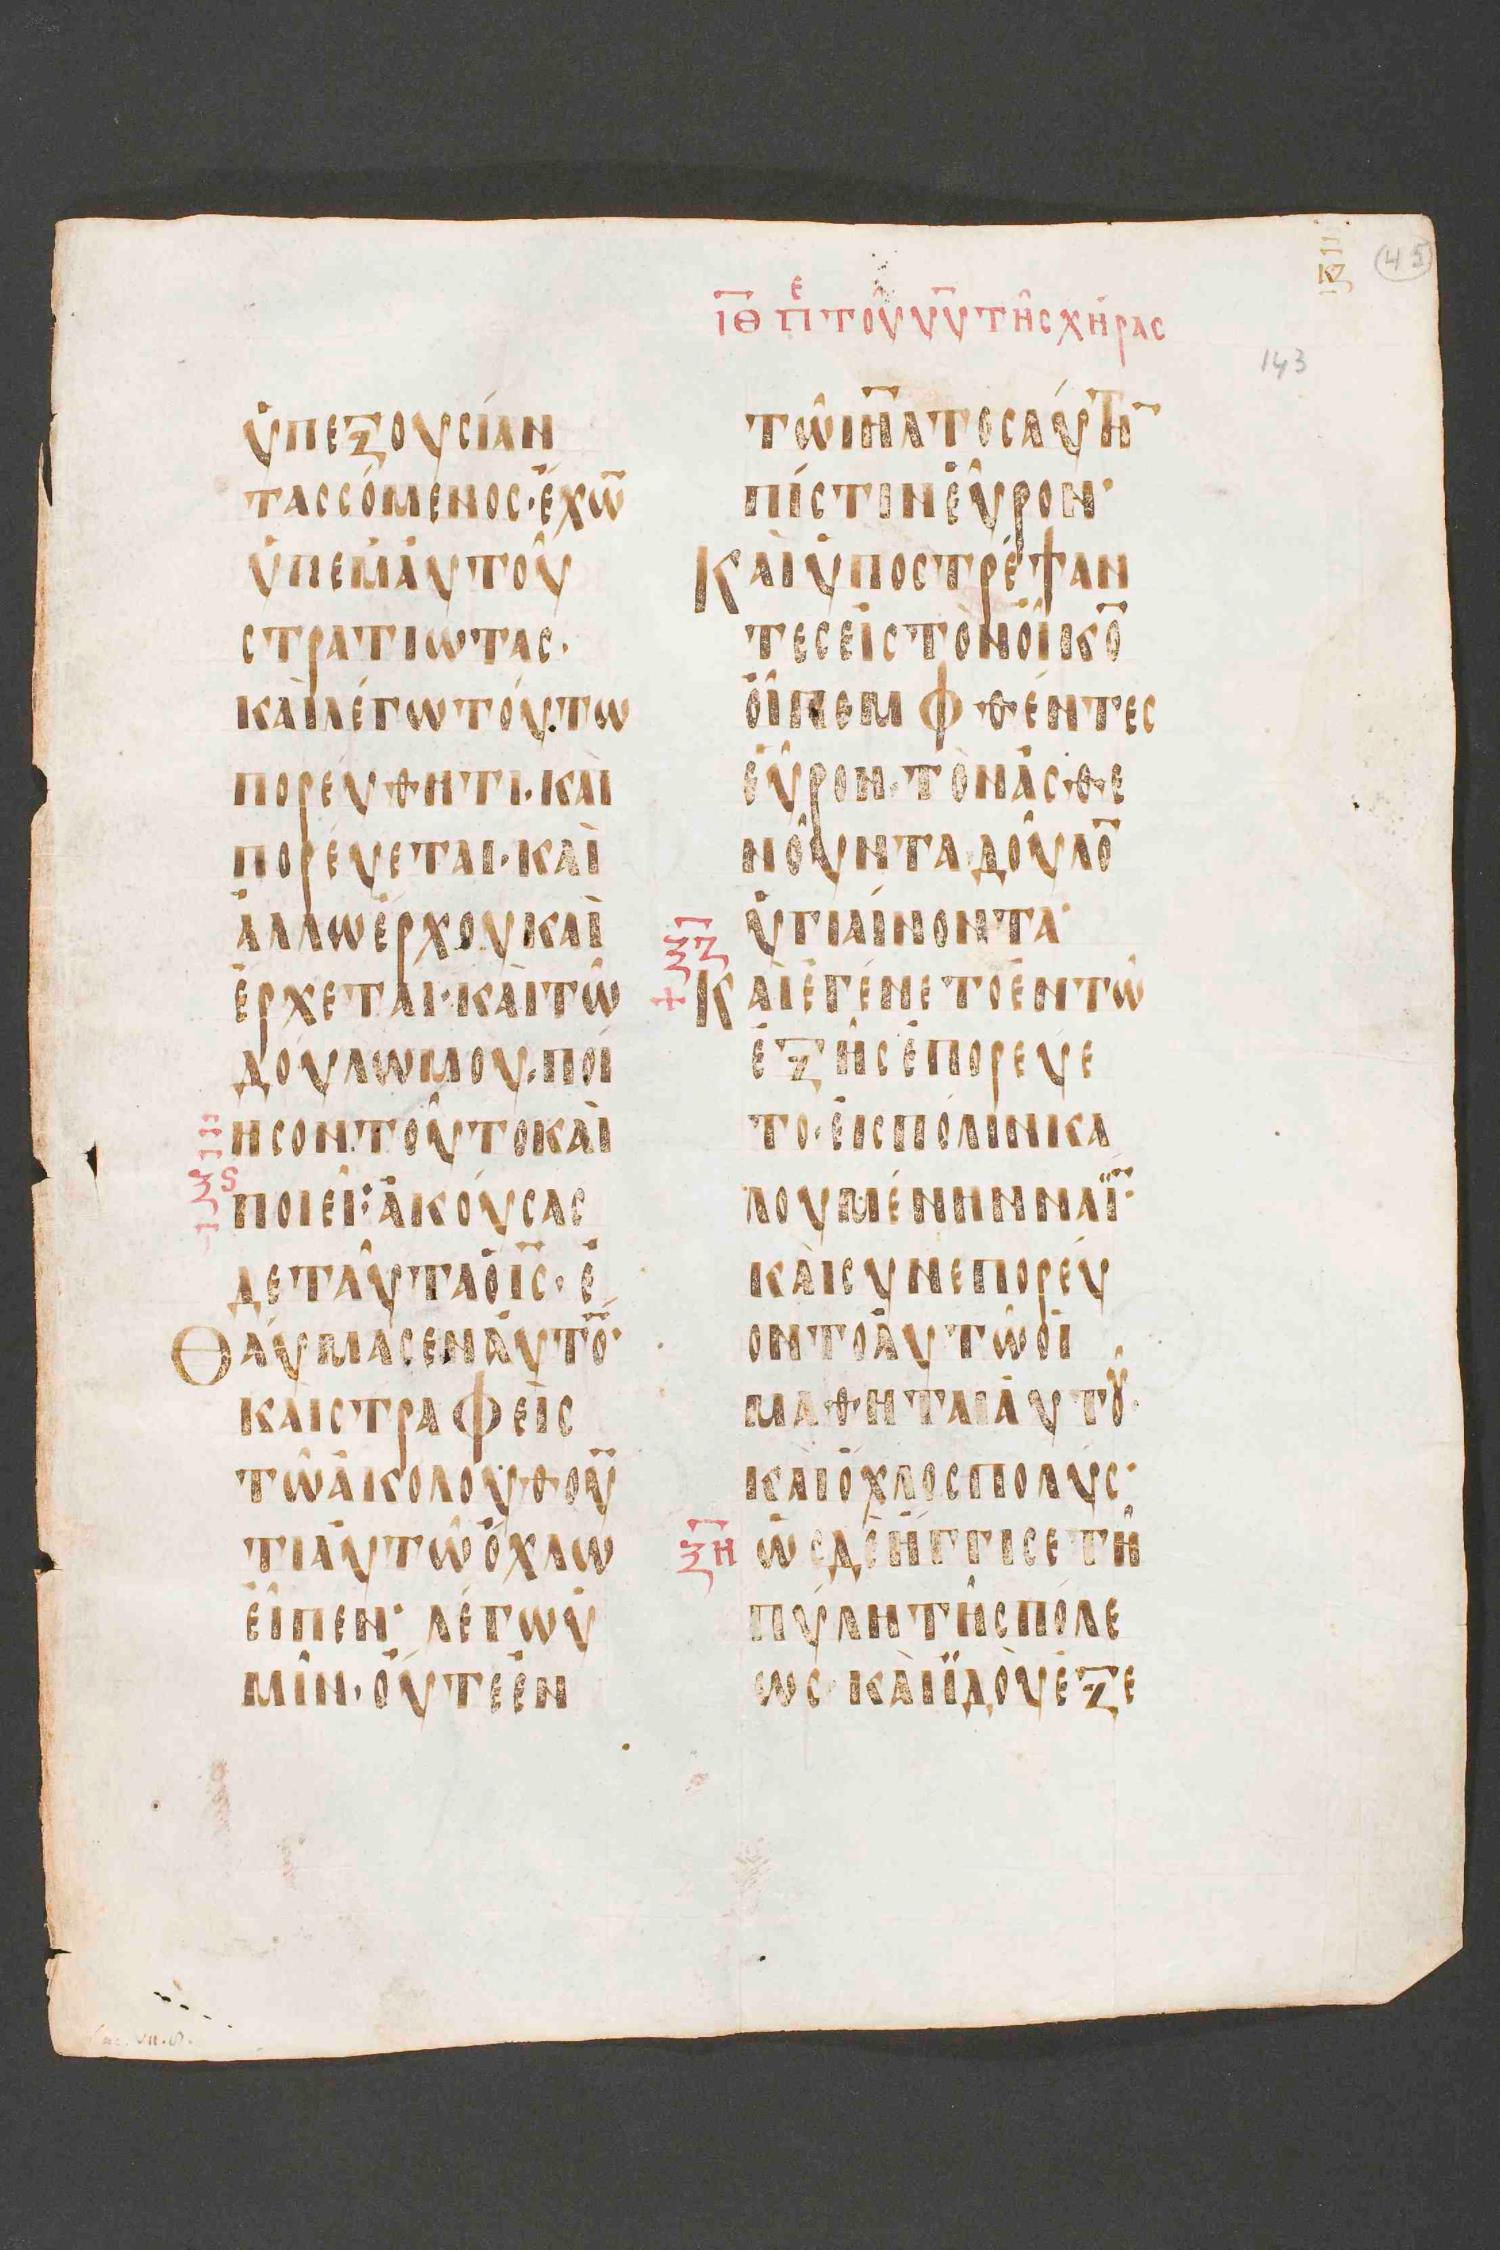 ΙΘ ΠΕ ΤΟΥ ΥΥ ΤΗΣ ΧΗΡΑΣ
(45)
143
ὑπεξουσίαν
τασσόμενος· ἔχω̅
ὑπ ἐμαυτοῦ
στρατιωτας·
καὶ λέγω τούτω
πορεύθητι· καὶ
πορέυεται· καὶ
ἄλλω ἔρχου και
ἔρχεται· καὶ τῶ
δουλω μου, ποί
ησον τοῦτο καὶ
ΞϚ
ποιεῖ: ἀκούσας
δε ταῦτα ὁ ι̅ς̅· ἐ
Θαύμασεν ἀυτο̅·
καὶ στραφεὶς
τῶ ἀκολουθου̅
τι ἀυτῶ ὄχλω
ἔιπεν· λέγω ὑ
μῖν· ὄυτε ἐν
τῶ ι̅η̅λ̅ τοσάυτη̅
πίστιν ἔυρον·
Καὶ ὑποστρέψαν
τες εἰς τὸν ὄικο̅
ὁι πεμφθέντες
ἔυρον· τὸν ἀσθε
νοῦντα δοῦλο̅
ὑγιαίνοντα·
ΞΖ
+ Και ἐγένετο ἐν τῶ
ἑξῆς ἐπορευε
το· ἐις πόλιν κα
λουμένην ναΐ̅·
καὶ συνεπορέυ
οντο ἀυτῶ ὁι
μαθηται ἀυτοῦ·
και ὄχλος πολυς·
ΞΗ
ὡς δὲ ἤγγισε τῆ
πύλη τῆς πόλε
ως· καὶ ἰδὸυ ἐξε